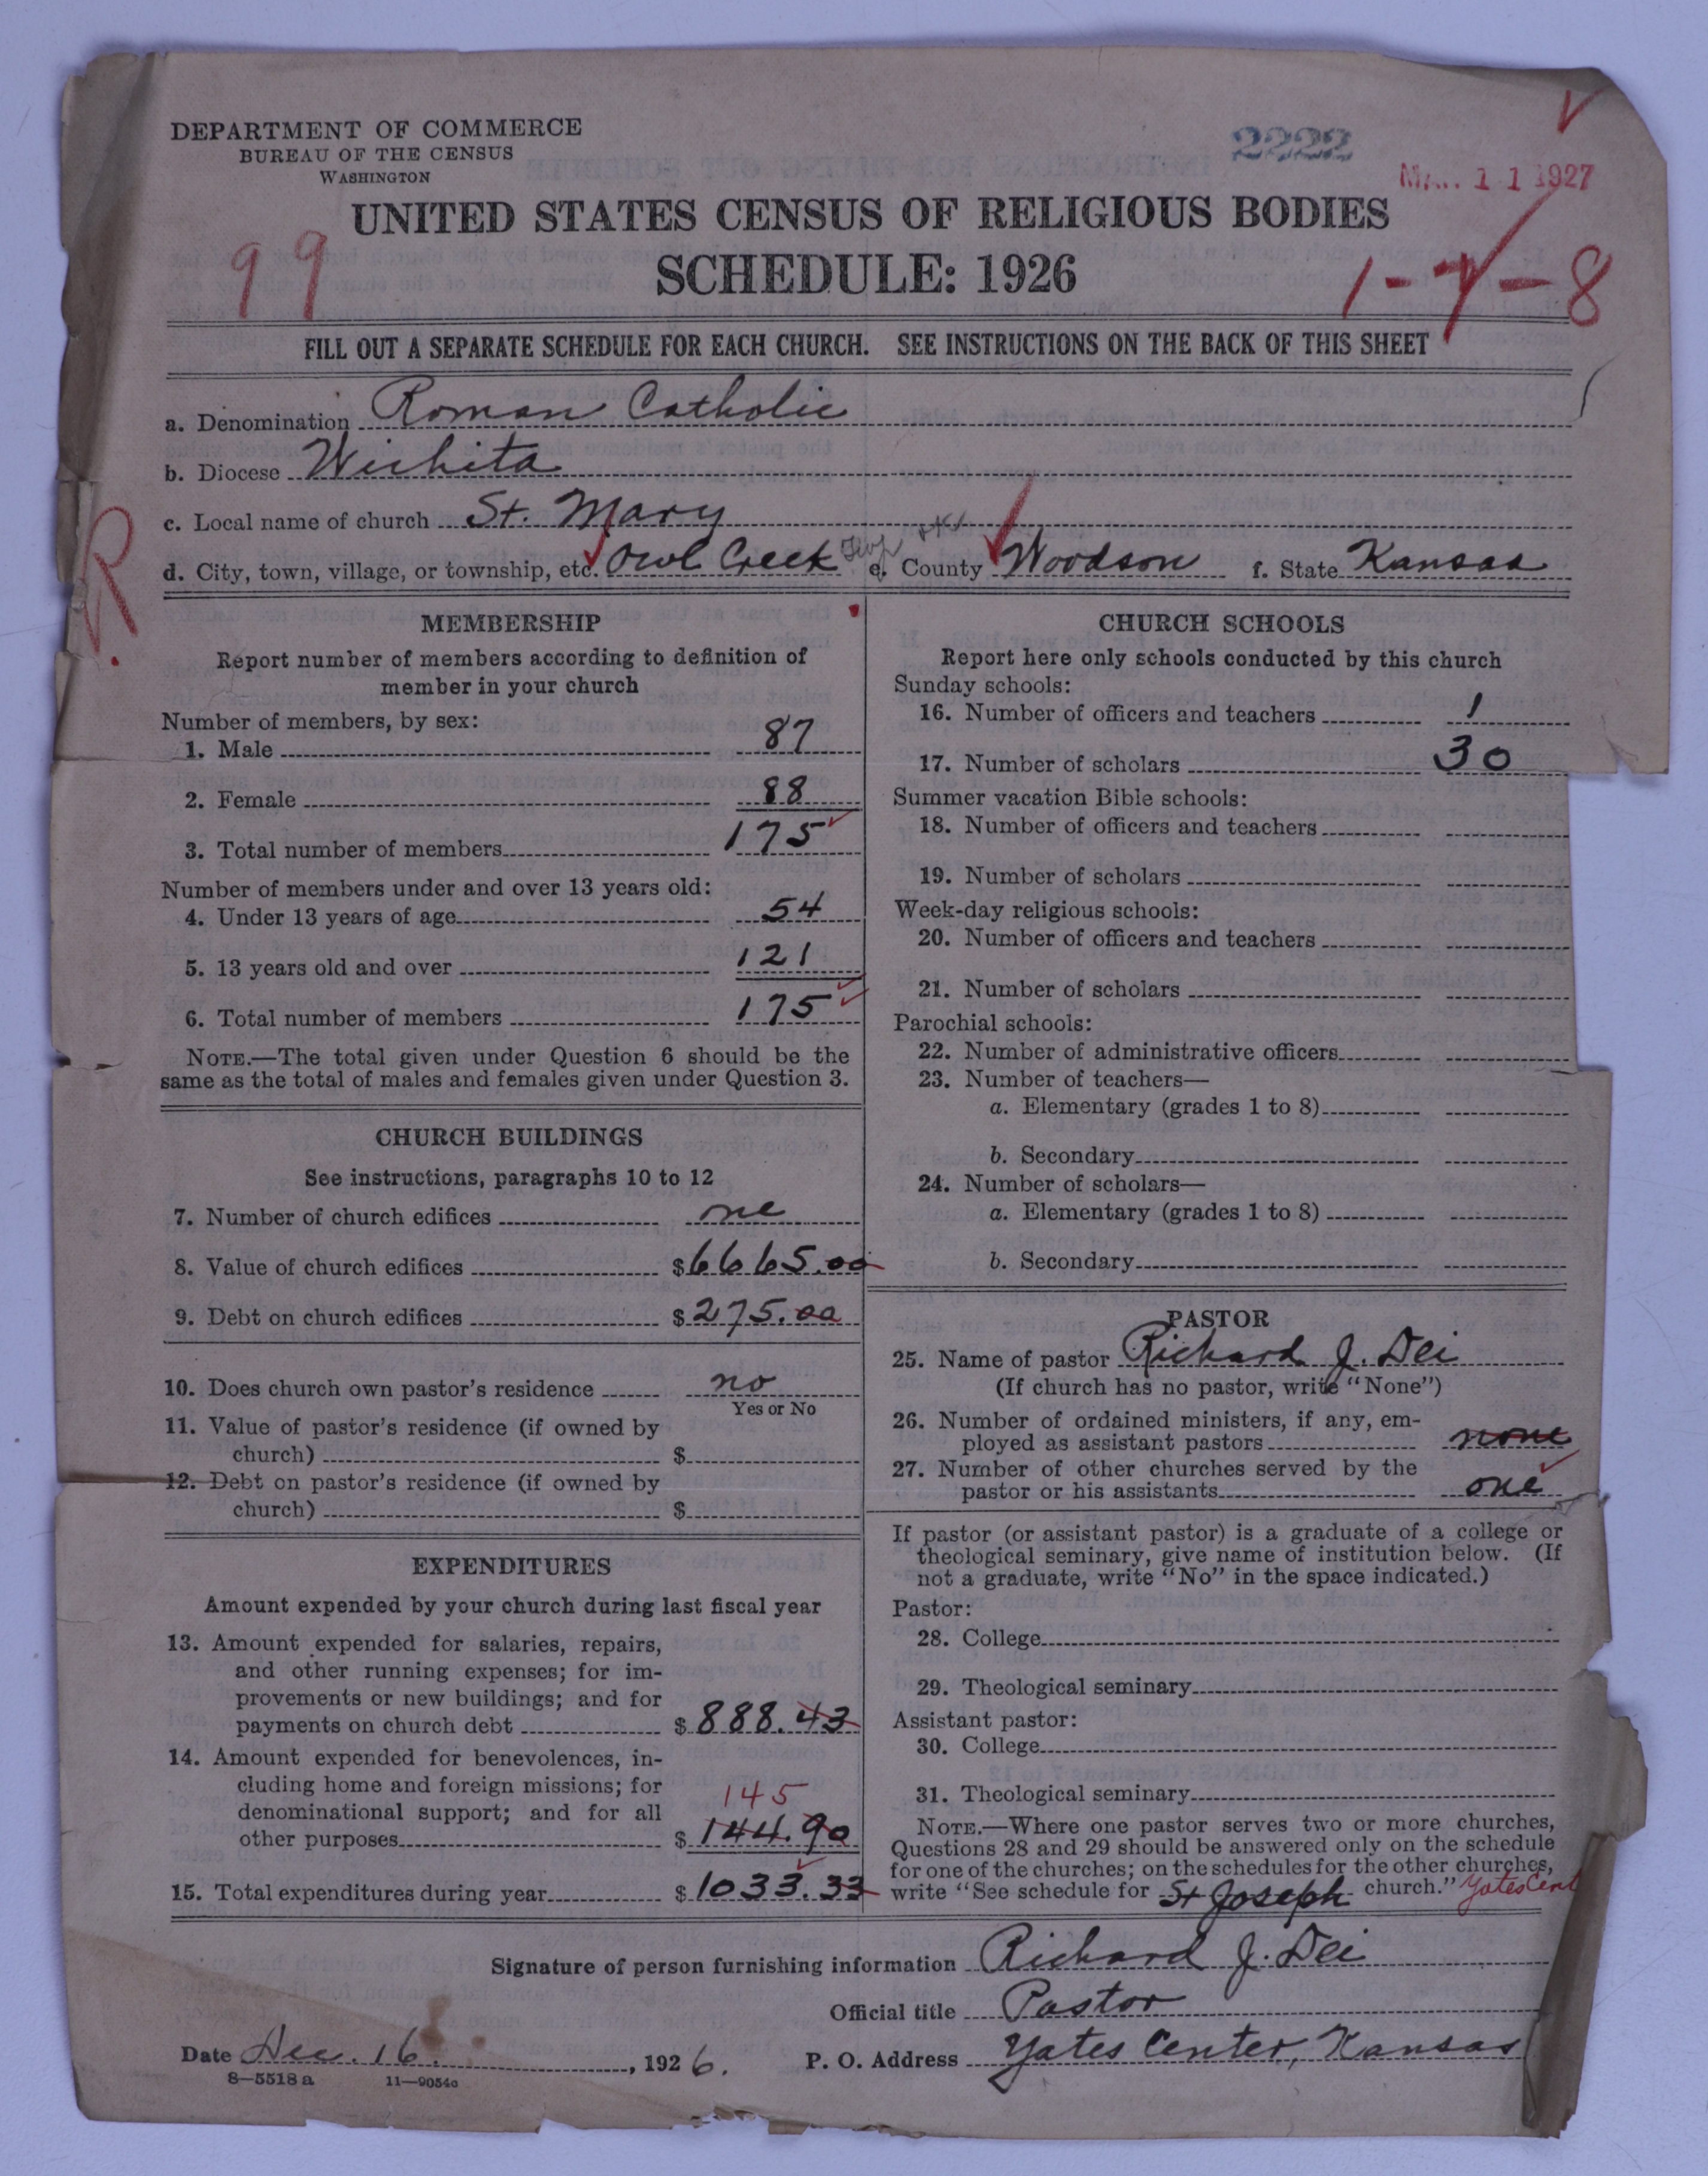 DEPARTMENT OF COMMERCE
BUREAU OF THE CENSUS
WASHINGTON
2222
MAR 11 1927
UNITED STATES CENSUS OF RELIGIOUS BODIES
SCHEDULE: 1926
99
1-7-8
FILL OUT A SEPARATE SCHEDULE FOR EACH CHURCH. SEE INSTRUCTIONS ON THE BACK OF THIS SHEET
a. Denomination Roman Catholic
b. Diocese Wichita
c. Local name of church St. Mary
d. City, town, village, or township, etc. Owl Creek Twp e. County Woodson f. State Kansas
R.
MEMBERSHIP
Report number of members according to definition of
member in your church
Number of members, by sex:
1. Male 87
2. Female 88
3. Total number of members 175
Number of members under and over 13 years old:
4. Under 13 years of age 54
5. 13 years old and over 121
6. Total number of members 175
NOTE.—The total given under Question 6 should be the
same as the total of males and females given under Question 3.
CHURCH BUILDINGS
See instructions, paragraphs 10 to 12
7. Number of church edifices one
8. Value of church edifices $6665.00
9. Debt on church edifices $275.00
10. Does church own pastor's residence no
Yes or No
11. Value of pastor's residence (if owned by
church) $
12. Debt on pastor's residence (if owned by
church) $
EXPENDITURES
Amount expended by your church during last fiscal year
13. Amount expended for salaries, repairs,
and other running expenses; for im-
provements or new buildings; and for
payments on church debt $888.43
14. Amount expended for benevolences, in-
cluding home and foreign missions; for
denominational support; and for all
145
other purposes $144.90
15. Total expenditures during year $1033.33
CHURCH SCHOOLS
Report here only schools conducted by this church
Sunday schools:
16. Number of officers and teachers 1
17. Number of scholars 30
Summer vacation Bible schools:
18. Number of officers and teachers
19. Number of scholars
Week-day religious schools:
20. Number of officers and teachers
21. Number of scholars
Parochial schools:
22. Number of administrative officers
23. Number of teachers—
a. Elementary (grades 1 to 8)
b. Secondary
24. Number of scholars—
a. Elementary (grades 1 to 8)
b. Secondary
PASTOR
25. Name of pastor Richard J. Dei
(If church has no pastor, write "None")
26. Number of ordained ministers, if any, em-
ployed as assistant pastors none
27. Number of other churches served by the
pastor or his assistants one
If pastor (or assistant pastor) is a graduate of a college or
theological seminary, give name of institution below. (If
not a graduate, write "No" in the space indicated.)
Pastor:
28. College
29. Theological seminary
Assistant pastor:
30. College
31. Theological seminary
NOTE.—Where one pastor serves two or more churches,
Questions 28 and 29 should be answered only on the schedule
for one of the churches; on the schedules for the other churches,
write "See schedule for St Joseph church." Yates Cent
Signature of person furnishing information Richard J. Dei
Official title Pastor
Date Dec. 16, 1926. P. O. Address Yates Center, Kansas
8—5518a 11—9054c